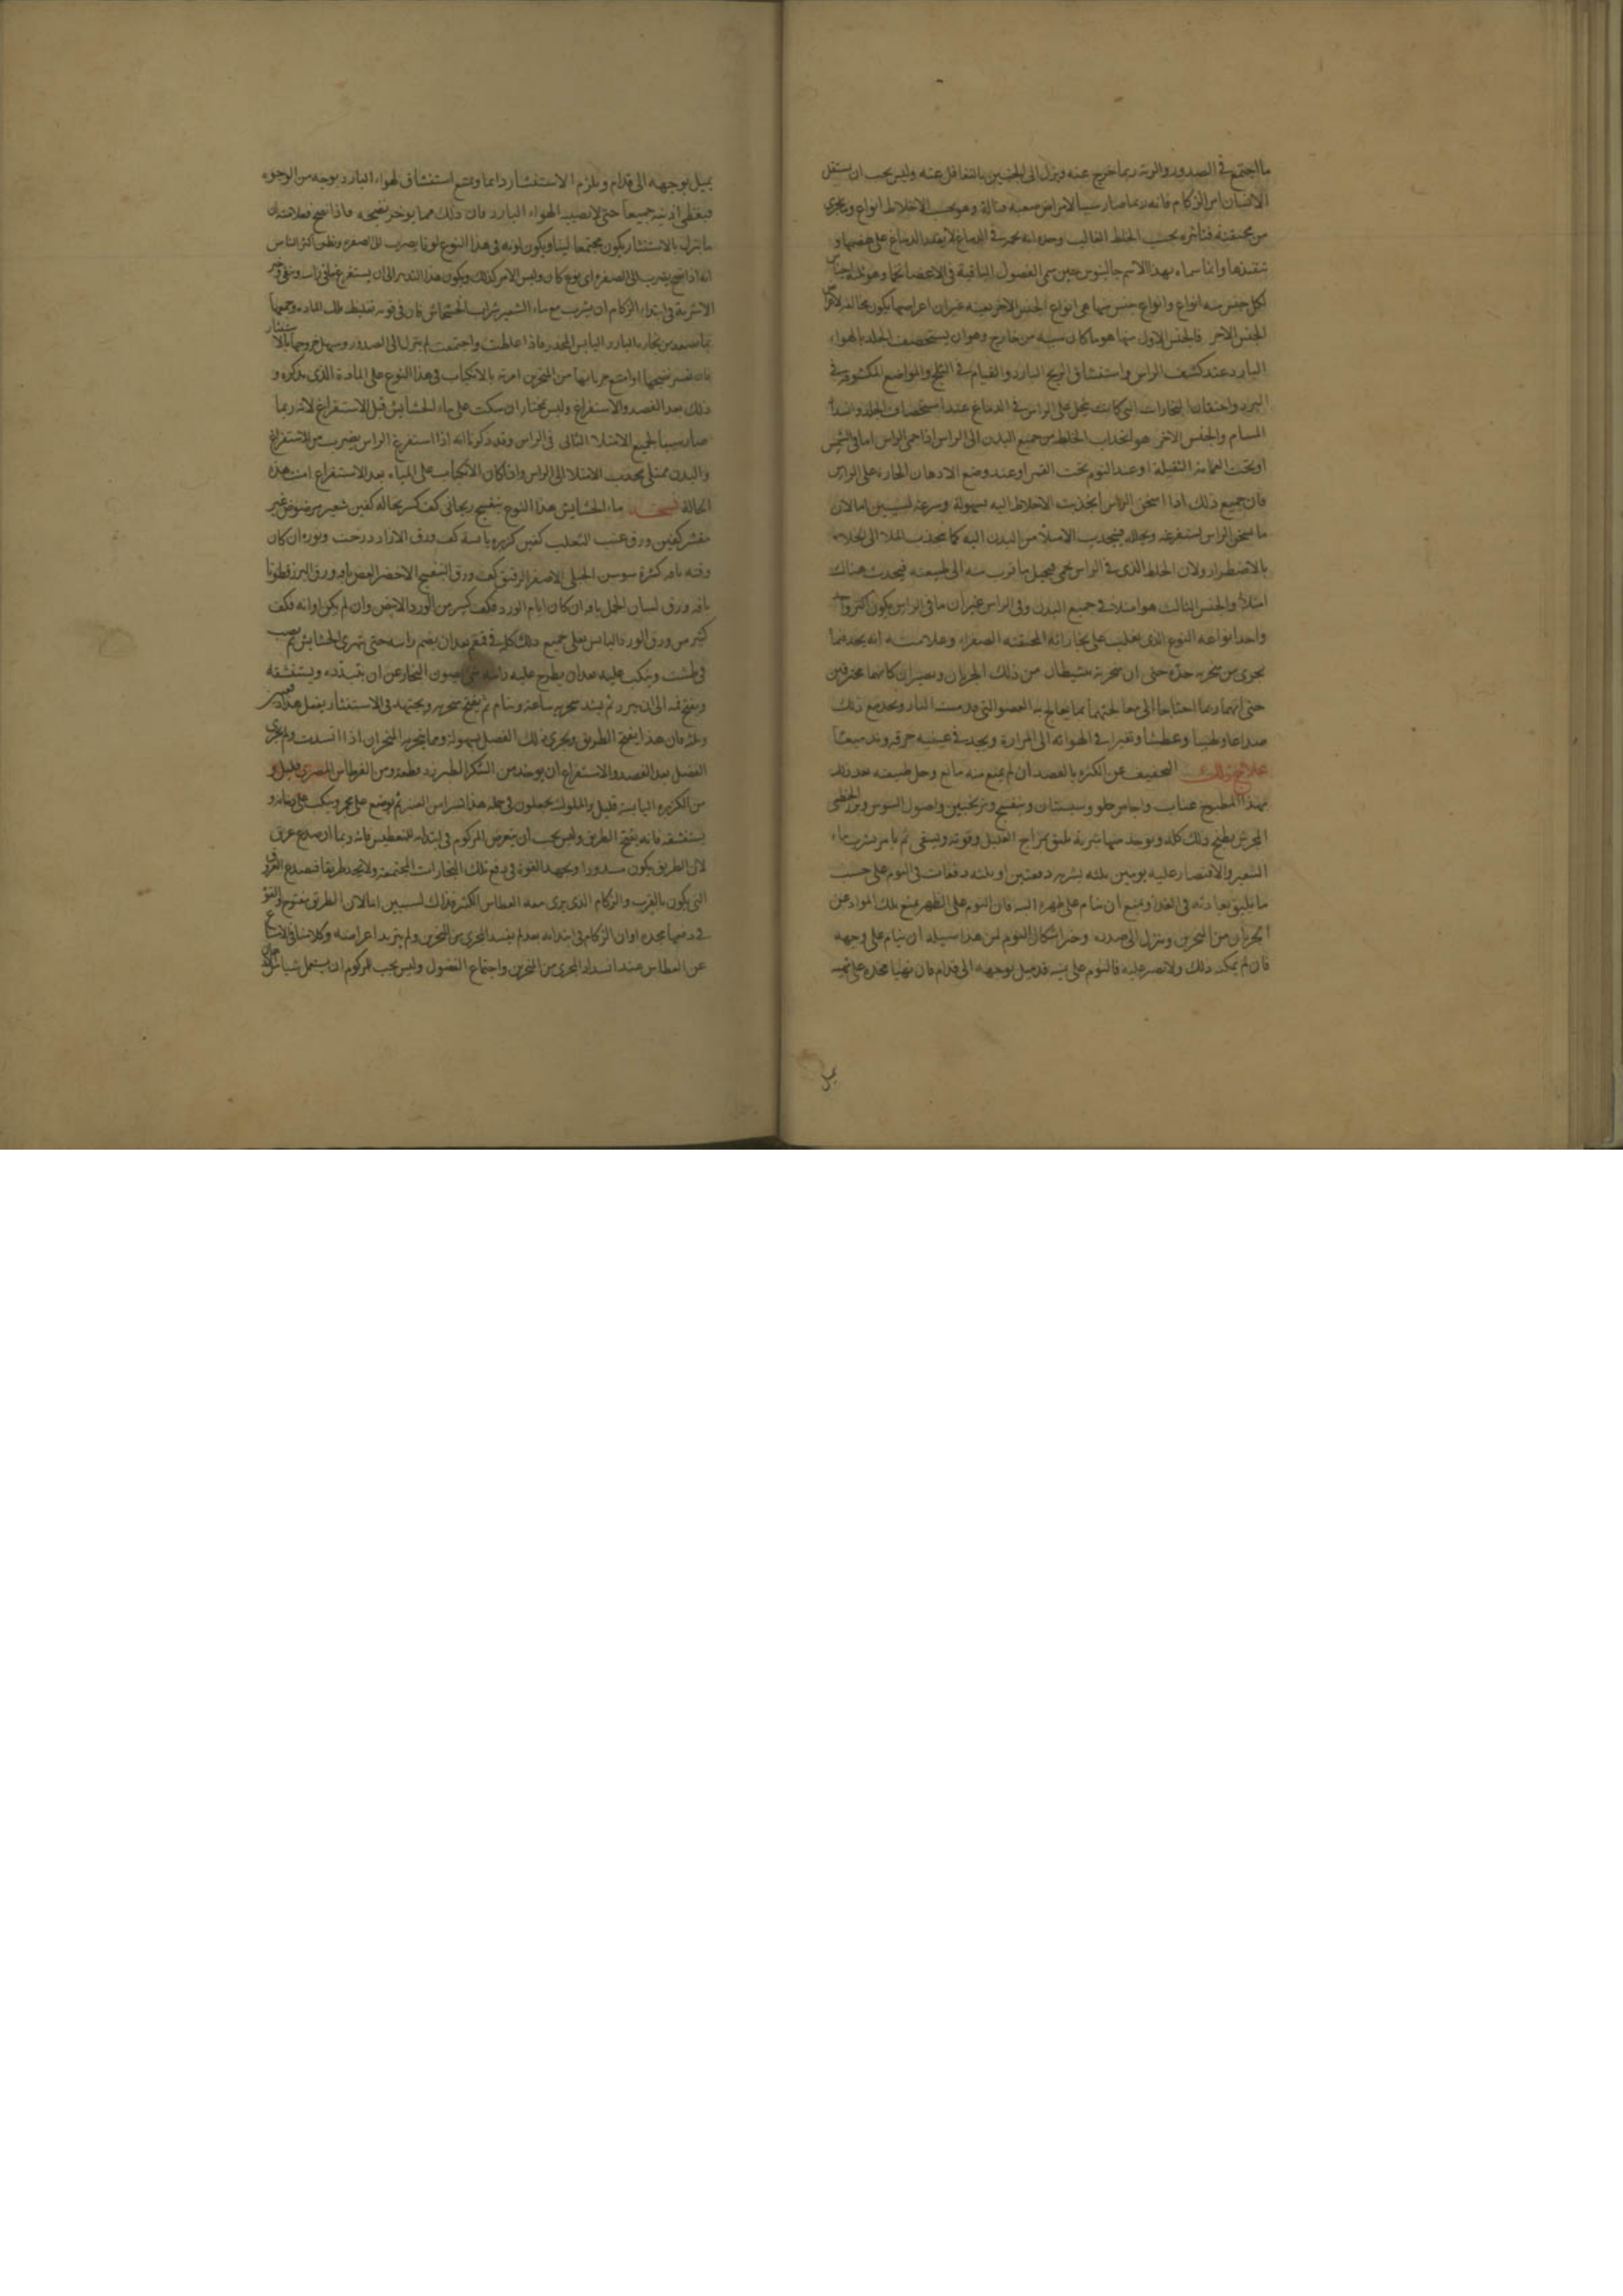 ما اجتمع في الصدور والرية ربما خرج عنه وينزل الى الجنبين بالتغافل عنه وليس يجب ان يستقل
الانسان امر الزكام فانه ربما صار سببا لامراض صعبة قتالة وهو بحسب الاخلاط انواع
من بحسب الخلط الغالب وحده انه في الدماغ لا يقدر الدماغ على هضمها و
تنفيذها وانما سماه بهذا الاسم جالينوس حين سمى الفضول الباقية في الاعضا وهو ثلثة اجناس
لكل جنس منه انواع وانواع جنس منها هى انواع الجنس الاخر بعينه غير ان اعراضها يكون مخالفة لاعراض
الجنس الاخر فالجنس الاول منها هو ما كان سببه من خارج وهو ان يستحصف الجلد بالهواء
البارد عند كشف الراس واستنشاق الريح البارد والقيام في الثلج والمواضع المكشوفة في
البرد واحتقان البخارات التي كانت تتحل على الراس في الدماغ عند استحصاف الجلد وانسداد
المسام والجنس الاخر هو انجذاب الخلط من جميع البدن الى الراس اذا حمى الراس اما في الشمس
او تحت العمامة الثقيلة او عند النوم تحت القمر او عند وضع الادهان الحارة على الراس
فان جميع ذلك اذا اسخن الراس انجذبت الاخلاط اليه بسهولة وسرعة لسببين اما لان
ما يسخن الراس يستفرغه ويحلله فينجذب الامتلاء من البدن اليه كما ينجذب الملا الى الخلاء
بالاضطرار ولان الخلط الذي في الراس يحمى فيحيل ما قرب منه الى طبيعته فيحدث هناك
امتلاء والجنس الثالث هو امتلاء في جميع البدن وفي الراس غير ان ما في الراس يكون اكثر
واحد انواعه النوع الذي يغلب على بخاراته المحتقنة الصفراء وعلامته انه يجد فيما
يجري من منخريه حدة حتى ان منخريه من ذلك الجريان ويصيران كانهما محترقين
حتى انهما ربما احتاجا الى معالجتهما بما يعالج به العضو التي مسته النار ويجد مع ذلك
صداعا ولهيبا وعطشا وتغيرا في لهواته الى المرارة ويجد في عينيه حرقة
علاج ذلك التخفيف عن الكثرة بالفصد ان لم يمنع منه مانع وحل طبيعته بعد ذلك
بهذا المطبوخ عناب واجاص حلو وسبستان وبنفسج وترنجبين واصول السوس وبزر الخطمى
المجرش يطبخ ذلك كله ويوخذ منها شربة تليق بمزاج العليل وقوته ويسقى ثم يامر بشرب ماء
الشعير والاقتصار عليه يومين ثلثة يشربه دفعتين او ثلثة دفعات في اليوم على حسب
ما يليق بعادته في الغذا ويمنع ان ينام على ظهره البتة فان النوم على الظهر يمنع تلك المواد عن
الجريان من المنخرين وينزل الى صدره وخير اشكال النوم لمن هذا سبيله ان ينام على وجهه
فان لم يمكنه ذلك ولا تصبر عليه فالنوم على جنبه قد يميل بوجهه الى قدام
يميل بوجهه الى قدام ويلزم الاستنثار دائما ويمنع استنشاق الهواء البارد بوجه من الوجوه
فيغطى اذنيه جميعا حتى لا يصيبه الهواء البارد فان ذلك مما يوخر نضجه فاذا نضج فعلامته ان
ما ينزل بالاستنثار يكون مجتمعا لينا ويكون لونه في هذا النوع لونا يضرب الى الصفرة وظن اكثر الناس
انه اذا نضج يضرب الى الصفرة اى نوع كان وليس الامر كذلك ويكون هذا التدبير الى ان يستفرغ
الاشربة في ابتداء الزكام ان يشرب مع ماء الشعير شراب الخشخاش فان في قوته تغليظ تلك المادة
بما يصعد من بخاره البارد اليابس المخدر فاذا غلظت واجتمعت لم ينزل الى الصدور وسهل خروجها بالاستنثار
فان عسر نضجها او امتنع جريانها من المنخرين امرته بالانكباب في هذا النوع على المادة الذي نذكره و
ذلك بعد الفصد والاستفراغ وليس نختار ان ينكب على ماء الحشايش قبل الاستفراغ لانه ربما
صار سببا لجميع الامتلا الثاني في الراس وقد ذكرنا انه اذا استفرغ الراس بضرب من الاستفراغ
والبدن ممتلى يجذب الامتلا الى الراس واذا كان الانكباب على المياه بعد الاستفراغ امنت هذه
الحالة نسخة ماء الحشايش هذا النوع بنفسج ريحاني كف كسر نخالة كفين شعير مرضوض غير
مقشر كفين ورق عنب الثعلب كفين كزبرة يابسة كف ورق الازاد درخت ونوره ان كان
وقته باقة كثيرة سوسن الجبلي الاصفر الرقيق كف ورق البنفسج الاخضر الغض باقة ورق البزر قطونا
باقة ورق لسان الحمل باقة ان كان ايام الورد فكف كبير من الورد الابيض وان لم يكن اوانه فكف
كبير من ورق الورد اليابس يغلى جميع ذلك كله في قمقم بعد ان يضم راسه حتى تهرى الحشايش ثم يصب
في طشت وينكب عليه بعد ان يطرح عليه راسه شى يصون البخار عن ان يتبدد ويستنشقه
ويفتح فمه الى ان يبرد ثم يشد منخريه ساعة وينام ثم يفتح منخريه ويجتهد في الاستنثار يفعل هذا مرتين
وثلثة فان هذا يفتح الطريق ويجري ذلك الفضل بسهولة ومما ينجر به المنخران اذا انسدت ولم يجري
الفضل بعد الفصد والاستفراغ ان يوخذ من السكر الطبرزد قطعة ومن القرطاس المصري قليل و
من الكزبرة اليابسة قليل والملوك يجعلون في جملة هذا يسرا من العنبر ثم يوضع على مجمر وينكب على دخانه و
يستنشقه فانه يفتح الطريق وليس يجب ان يتعرض المزكوم في ابتدائه للتعطيس فانه ربما انصدع عرق
لان الطريق يكون مسدودا ويجهد القوة في دفع تلك البخارات المجتمعة ولا يجد طريقا فيصدع العرق
التي يكون بالقرب والزكام الذي يرى معه العطاس الكثير فذاك لسببين اما لان الطريق مفتوح والقوة
في دفعها مجدة او ان الزكام في ابتدائه بعد لم يفسد المجرى من المنخرين ولم يتزيد اعراضه وكلامنا في الامتناع
عن العطاس عند انسداد المجرى من المنخرين واجتماع الفضول وليس يجب للمزكوم ان يستعمل شيا